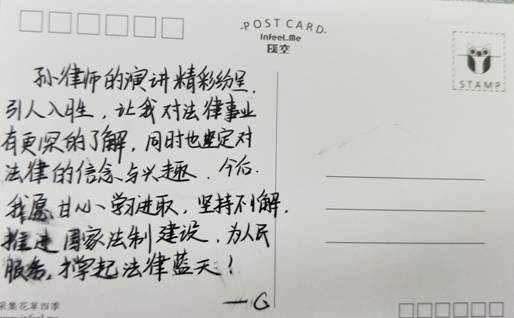 POST CARD
Infeel.Me
STAMP
孙律师的演讲精彩纷呈,
引人入胜,让我对法律事业
有更深的了解,同时也坚定对
法律的信念与兴趣.今后.
我愿甘心学习进取,坚持不懈.
推进国家法制建设,为人民
服务,撑起法律蓝天!
—G
采集花草四季
www.infeel.me